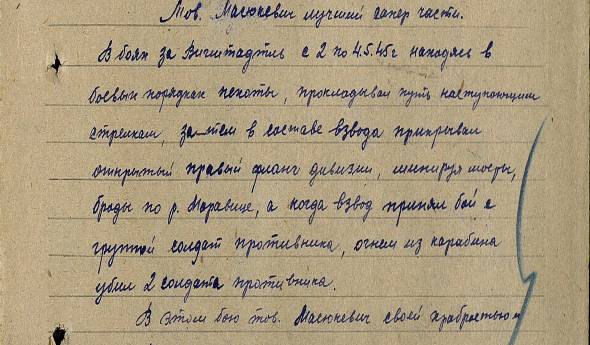 Тов. Масюкевич лучший сапер части.
В боях за Вигштадтль с 2 по 4.5.45г находясь в
боевых порядках пехоты, прокладывал путь наступающим
стрелкам, затем в составе взвода прикрывал
открытый правый фланг дивизии, минируя мосты,
броды по р. Моравице, а когда взвод принял бой с
группой солдат противника, огнем из карабина
убил 2 солдата противника.
В этом бою тов. Масюкевич своей храбростью